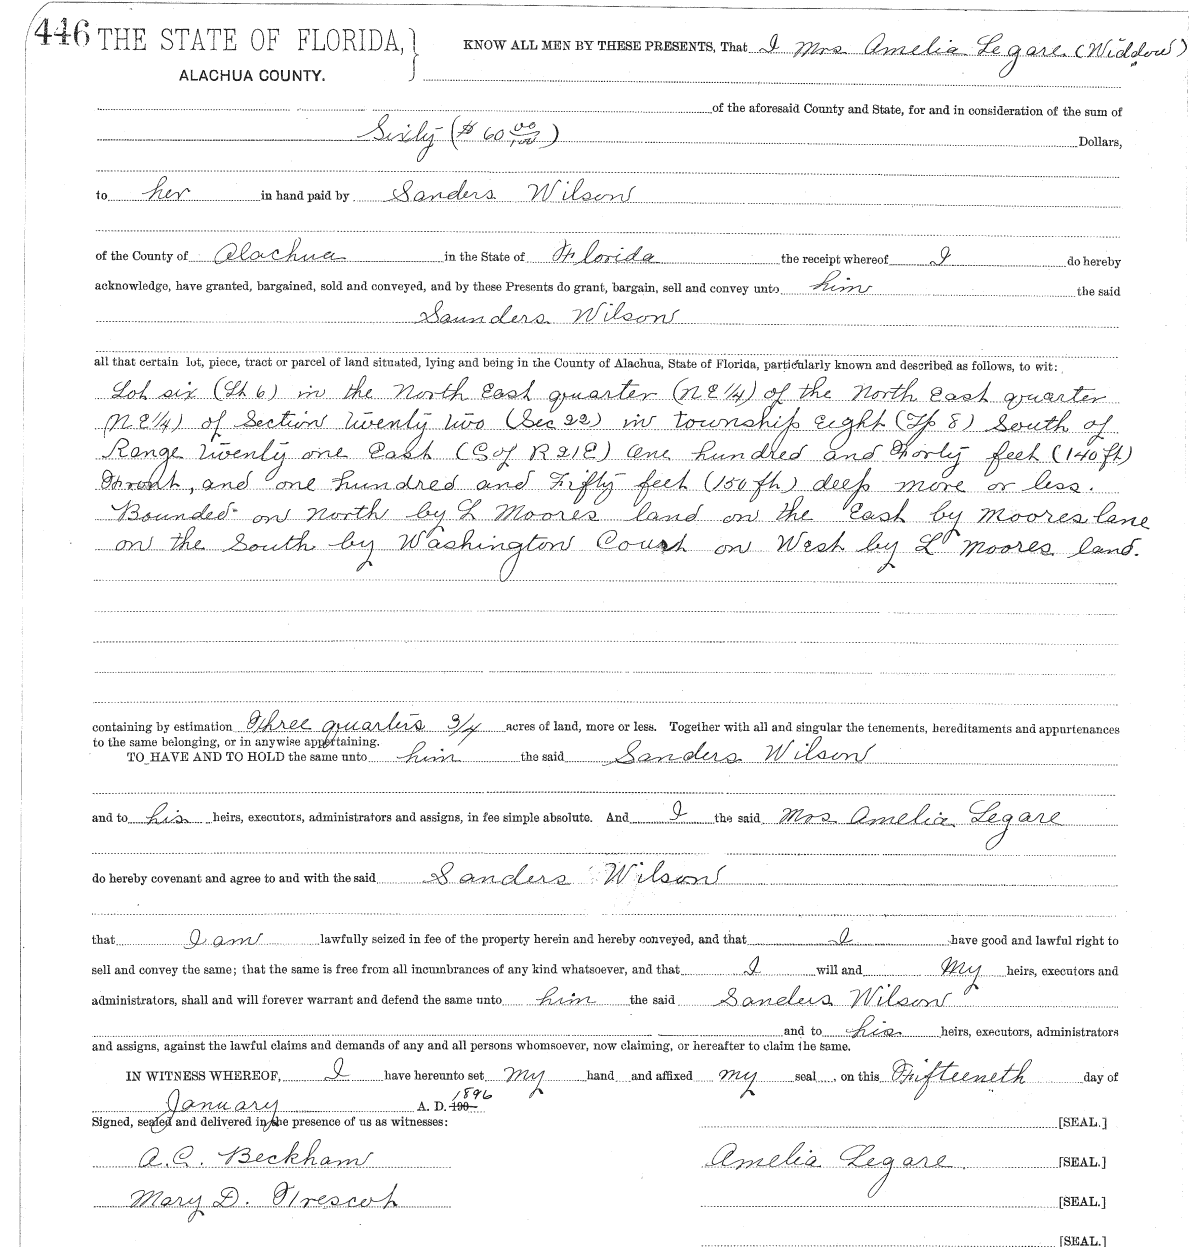 446 THE STATE OF FLORIDA, } KNOW ALL MEN BY THESE PRESENTS, That I Mrs Amelia Legare (Widdow)
ALACHUA COUNTY.
of the aforesaid County and State, for and in consideration of the sum of
Sixty ($60 00/100) Dollars,
to her in hand paid by Sanders Wilson
of the County of Alachua in the State of Florida the receipt whereof I do hereby
acknowledge, have granted, bargained, sold and conveyed, and by these Presents do grant, bargain, sell and convey unto him the said
Saunders Wilson
all that certain lot, piece, tract or parcel of land situated, lying and being in the County of Alachua, State of Florida, particularly known and described as follows, to wit:
Lot six (Lt 6) in the North East quarter (N E 1/4) of the North East quarter
(N E 1/4) of Section twenty two (Sec 22) in township Eight (Tp 8) South of
Range twenty one East (S of R 21 E) One hundred and Forty feet (140 ft)
Front, and one hundred and Fifty feet (150 ft) deep more or less.
Bounded on North by L Moores land on the East by Moores lane
on the South by Washington Court on West by L Moores land.
containing by estimation Three quarters 3/4 acres of land, more or less. Together with all and singular the tenements, hereditaments and appurtenances
to the same belonging, or in anywise appertaining.
TO HAVE AND TO HOLD the same unto him the said Sanders Wilson
and to his heirs, executors, administrators and assigns, in fee simple absolute. And I the said Mrs Amelia Legare
do hereby covenant and agree to and with the said Sanders Wilson
that I am lawfully seized in fee of the property herein and hereby conveyed, and that I have good and lawful right to
sell and convey the same; that the same is free from all incumbrances of any kind whatsoever, and that I will and My heirs, executors and
administrators, shall and will forever warrant and defend the same unto him the said Sanders Wilson
and to his heirs, executors, administrators
and assigns, against the lawful claims and demands of any and all persons whomsoever, now claiming, or hereafter to claim the same.
IN WITNESS WHEREOF, I have hereunto set my hand and affixed my seal, on this Fifteeneth day of
January A. D. 190 1896
Signed, sealed and delivered in the presence of us as witnesses: [SEAL.]
A. C. Beckham Amelia Legare [SEAL.]
Mary D. Trescot [SEAL.]
[SEAL.]